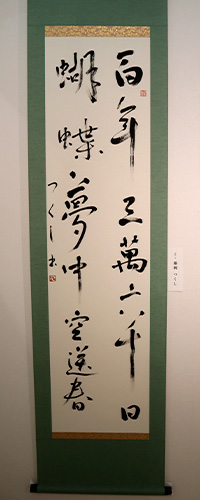 百年三萬六千日
蝴蝶夢中空送春
つくし書